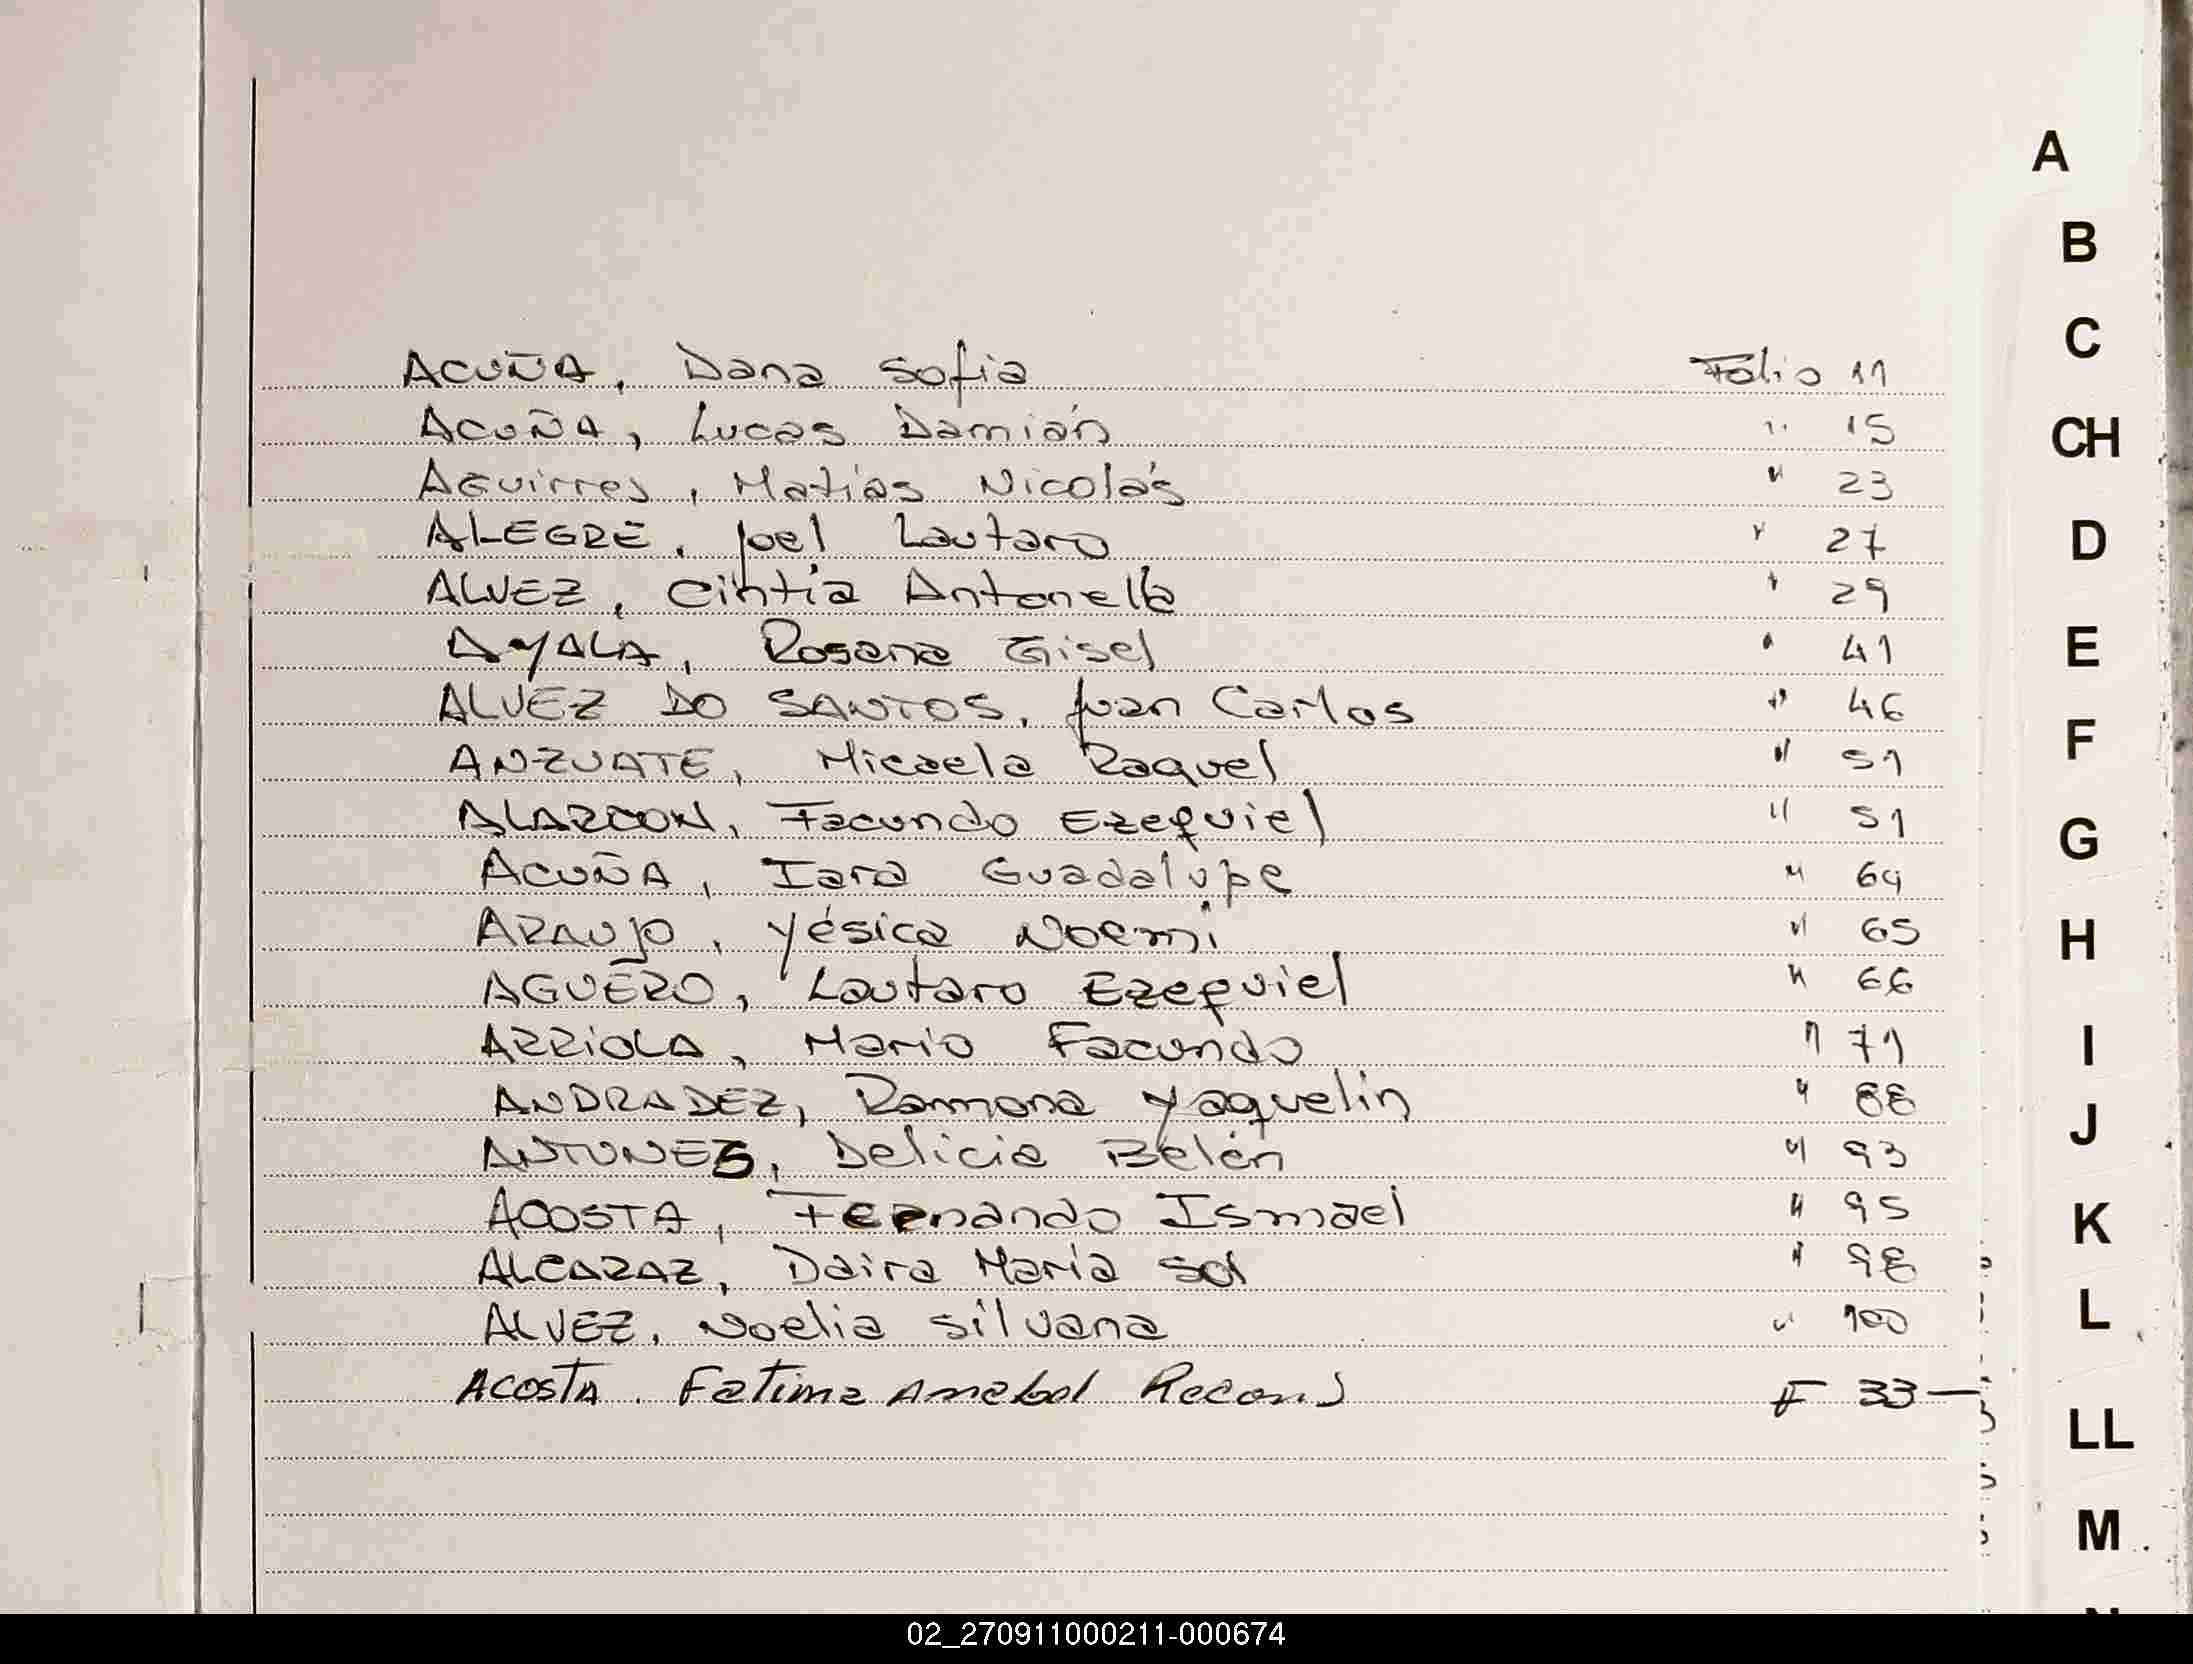 ACUÑA, Dana Sofia Folio 11
ACUÑA, Lucas Damián " 15
AGuirres, Matias Nicolás " 23
ALEGRE, Joel Lautaro " 27
ALVEZ, Cintia Antonella " 29
AYALA, Rosana Gisel " 41
ALVEZ DO SANTOS, Juan Carlos " 46
ANZUATE, Micaela Raquel " 51
ALARCON, Facundo Ezequiel " 51
ACUÑA, Iara Guadalupe " 64
ARAUJO, Yésica Noemi " 65
AGUERO, Lautaro Ezequiel " 66
ARRIOLA, Mario Facundo " 71
ANDRADEZ, Ramona Yaquelin " 88
ANTUNES, Delicia Belén " 93
ACOSTA, Fernando Ismael " 95
ALCARAZ, Daira Maria Sol " 98
ALVEZ, Noelia Silvana " 100
ACOSTA. Fatima Anabel F 33 —
A
B
C
CH
D
E
F
G
H
I
J
K
L
LL
M
02_270911000211-000674